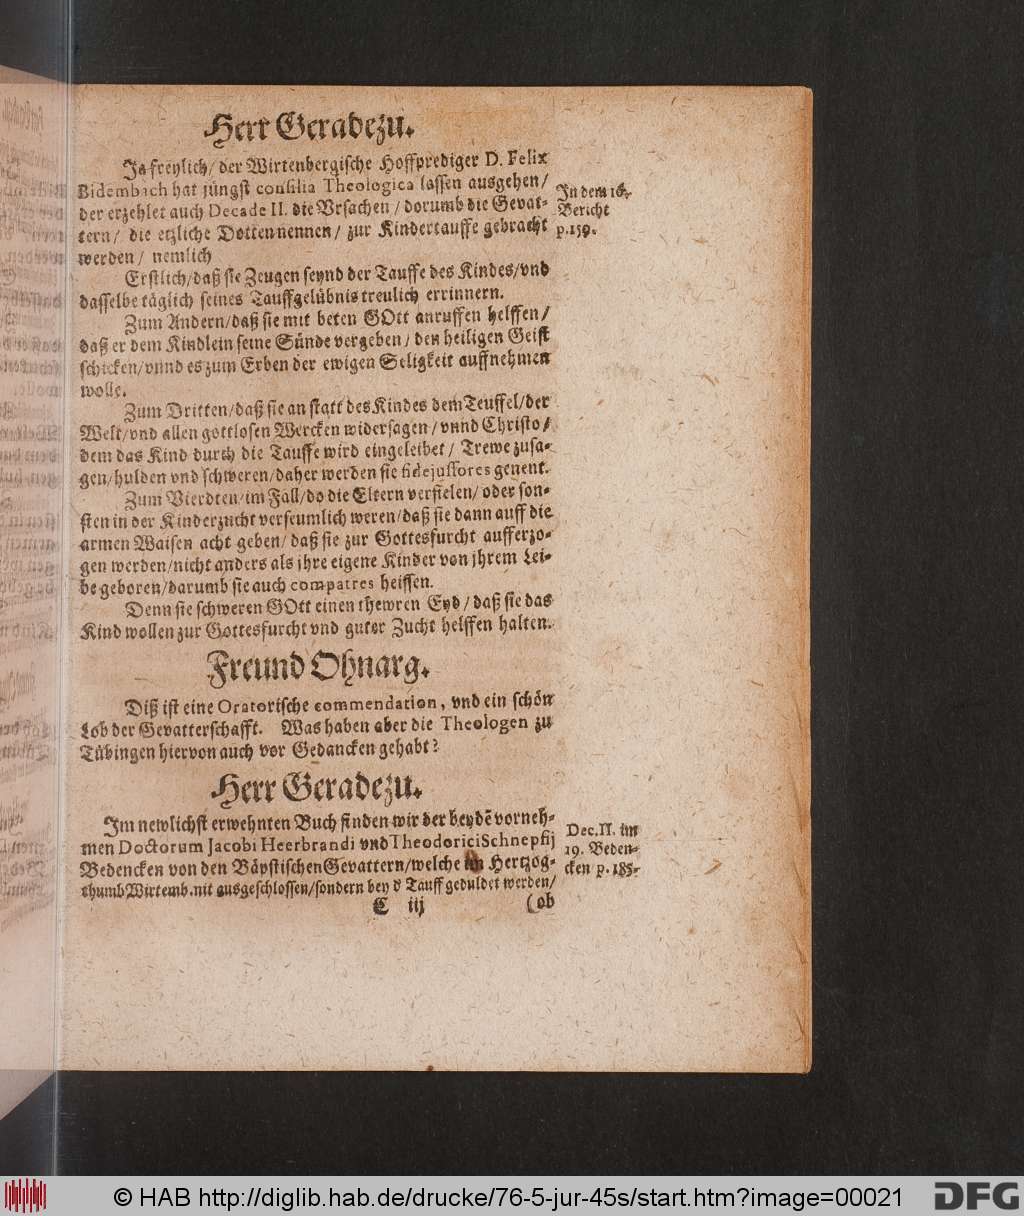 Herr Geradezu.
Ja freylich/ der Wirtenbergische Hoffprediger D. Felix
Bidembach hat jüngst consilia Theologica lassen ausgehen/
der erzehlet auch Decade II. die Vrsachen / dorumb die Gevat-
tern/ die etzliche Dotten nennen / zur Kindertauffe gebracht
werden / nemlich
In dem 16.
Bericht
p. 159.
Erstlich/daß sie Zeugen seynd der Tauffe des Kindes/vnd
dasselbe täglich seines Tauffgelübnis treulich errinnern.
Zum Andern/daß sie mit beten GOtt anruffen helffen/
daß er dem Kindlein seine Sünde vergeben / den heiligen Geist
schicken/vnnd es zum Erben der ewigen Seligkeit auffnehmen
wolle.
Zum Dritten/daß sie an statt des Kindes dem Teuffel/der
Welt/vnd allen gottlosen Wercken widersagen / vnnd Christo/
dem das Kind durch die Tauffe wird eingeleibet / Trewe zusa-
gen/hulden vnd schweren/daher werden sie fidejussores genent.
Zum Vierdten/im Fall/do die Eltern verfielen/ oder son-
sten in der Kinderzucht verseumlich weren/daß sie dann auff die
armen Waisen acht geben/ daß sie zur Gottesfurcht aufferzo-
gen werden/nicht anders als jhre eigene Kinder von jhrem Lei-
be geboren/darumb sie auch compatres heissen.
Denn sie schweren GOtt einen thewren Eyd / daß sie das
Kind wollen zur Gottesfurcht vnd guter Zucht helffen halten.
Freund Ohnarg.
Diß ist eine Oratorische commendation, vnd ein schön
Lob der Gevatterschafft. Was haben aber die Theologen zu
Tübingen hiervon auch vor Gedancken gehabt?
Herr Geradezu.
Im newlichst erwehnten Buch finden wir der beydẽ vorneh-
men Doctorum Jacobi Heerbrandi vnd Theodorici Schnepfij
Bedencken von den Bäpstischen Gevattern/welche im Hertzog-
thumb Wirtemb. nit ausgeschlossen/sondern bey d' Tauff geduldet werden/
Dec. II. im
19. Beden-
cken p. 185.
C iij (ob
© HAB http://diglib.hab.de/drucke/76-5-jur-45s/start.htm?image=00021
DFG